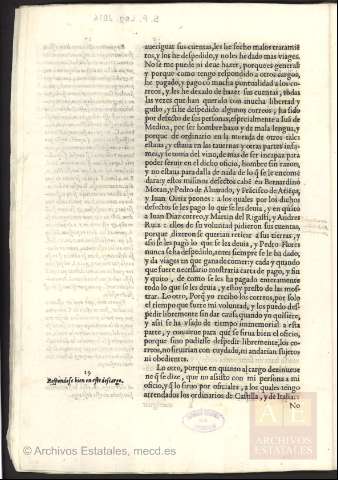 aueriguar sus cuentas, les he fecho malos tratamie
tos, y los he despedido, y no les he dado mas viages.
No se me puede ni deue hazer, porque es general:
y porque como tengo respondido a otros cargos,
he pagado, y pago cō mucha puntualidad a los co-
rreos, y les he dexado de hazer sus cuentas, todas
las vezes que han querido con mucha libertad y
gusto, y si he despedido algunos correos, ha sido
por defecto de sus personas, especialmente a Iusī de
Medina, por ser hombre baxo y de mala lengua, y
porque de ordinario en la morada de otros tales
estaua, y estaua en las tauernas y otras partes infa-
mes, y se tomaua del vino, de mas de ser incapaz para
poder seruir en el dicho oficio, hombre sin razon,
y no estaua para dalla de nada de lo q̄ se le encomē
dara: y estos mismos defectos cabē en Bernardino
Moran, y Pedro de Aluarado, y Frācisco de
y Iuan Ortiz peones: a los quales por los dichos
defectos se les pagò lo que se les deuia, y en quāto
a Iuan Diaz correo, y Martin del Rigalli, y Andres
Ruiz: ellos de su voluntad pidieron sus cuentas,
porque dixeron se querian retirar a sus tierras, y
assi se les pagò lo que se les deuia, y Pedro Flores
nunca se ha despedido, antes siempre se le ha dado,
y da viages en que gana de comer: y cada y quando
que fuere necessario mostraria cartas de pago, y fin
y quito, de como se les ha pagado enteramente
todo lo que se les deuia, y estoy presto de las mos-
trar. Lo otro, Porq̄ yo recibo los correos, por solo
el tiempo que fuere mi voluntad, y los puedo des-
pedir libremente sin dar causa quando yo quisiere,
y assi se ha vsado de tiempo immemorial a esta
parte, y conuiene para que se sirua bien el oficio,
porque sino pudiesse despedir libremente, los co-
rreos, no seruirian con cuydado, ni andarian sujetos
ni obedientes.
19
Respondese bien en este descargo.
Lo otro, porque en quanto al cargo diezinueue
no q̄ se dize, que no assisto con mi persona a mi
oficio, y q̄ lo siruo por oficiales, a los quales tengo
arrendados los ordinarios de Castilla, y de Italia:
No
© Archivos Estatales, mecd.es